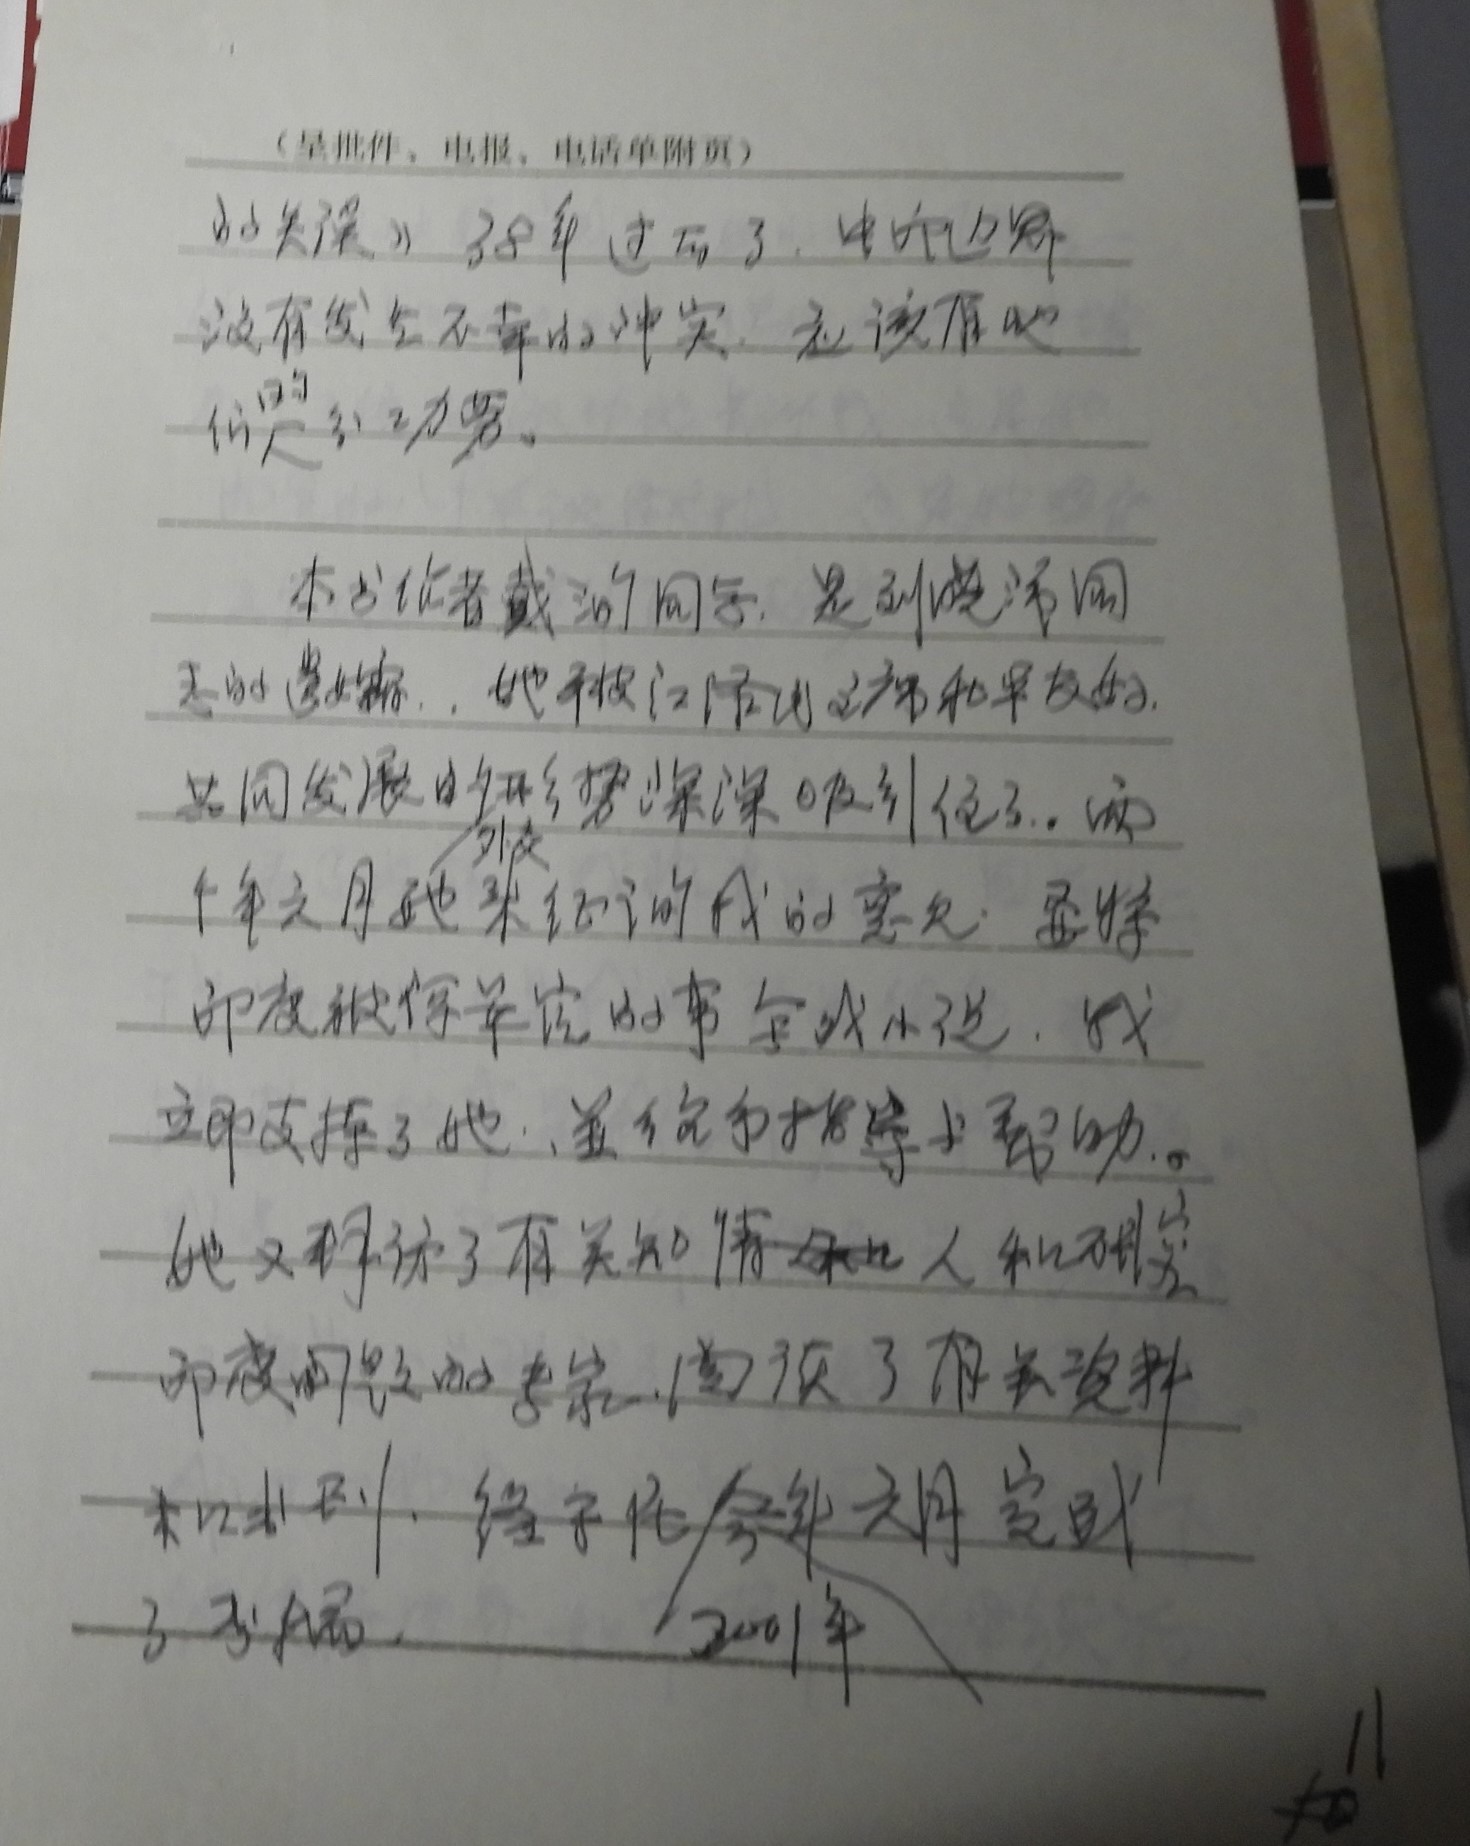 (呈批件、电报、电话单附页)
的失误》38年过后了.中印边界
没有发生不幸的冲突.应该有他
们的一份功劳。
本书作者戴 同志.是刘晓 同
志的遗孀.她被江泽民主席和平友好.
共同发展的外交形势深深吸引住了.两
千年六月她来征询我的意见.
印度被俘 的事写成小说.我
立即支持了她.并给予指导与帮助.
她又採访了有关知情人和研究
印度问题的专家.阅读了有关资料
和书刊.终于在2001年六月完成
了书稿.
2001年
11